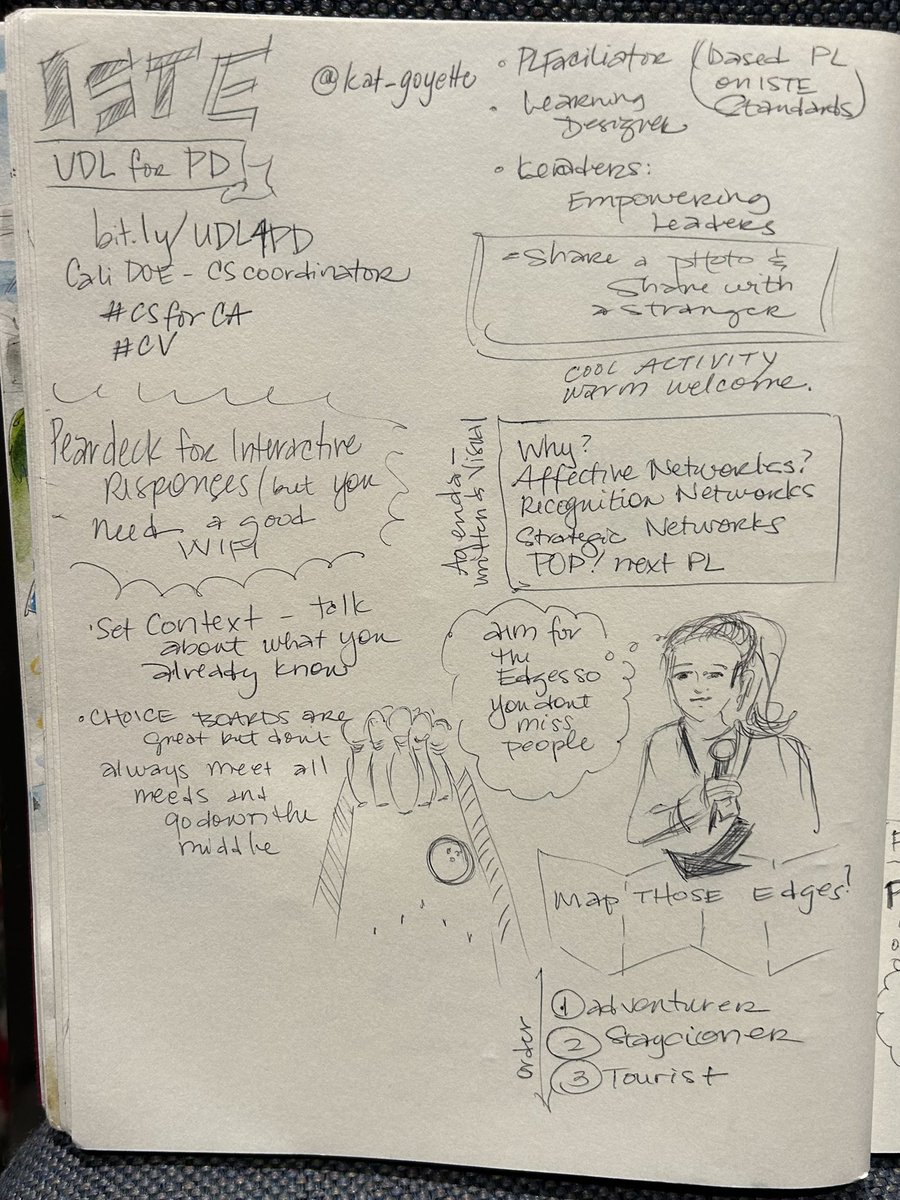 ISTE
UDL for PD
@kat-goyette
bit.ly/UDL4PD
Cali DOE - CS coordinator
#CSforCA
#CV
Peardeck for Interactive
Risponses/but you
need a good
WIFI
•Set Context - talk
about what you
already know
• CHOICE BOARDS are
great but dont
always meet all
needs and
go down the
middle
• PLFaciliator (based PL
on ISTE
Standards)
• Learning
Designer
• Leaders:
Empowering
Leaders
Share a photo &
Share with
a stranger
COOL ACTIVITY
warm welcome.
Agenda -
written & visual
Why?
Affective Networks?
Recognition Networks
Strategic Networks
POP! next PL
aim for
the
Edges so
you dont
miss
people
Map THOSE Edges!
order
1 adventurer
2 Staycioner
3 Tourist